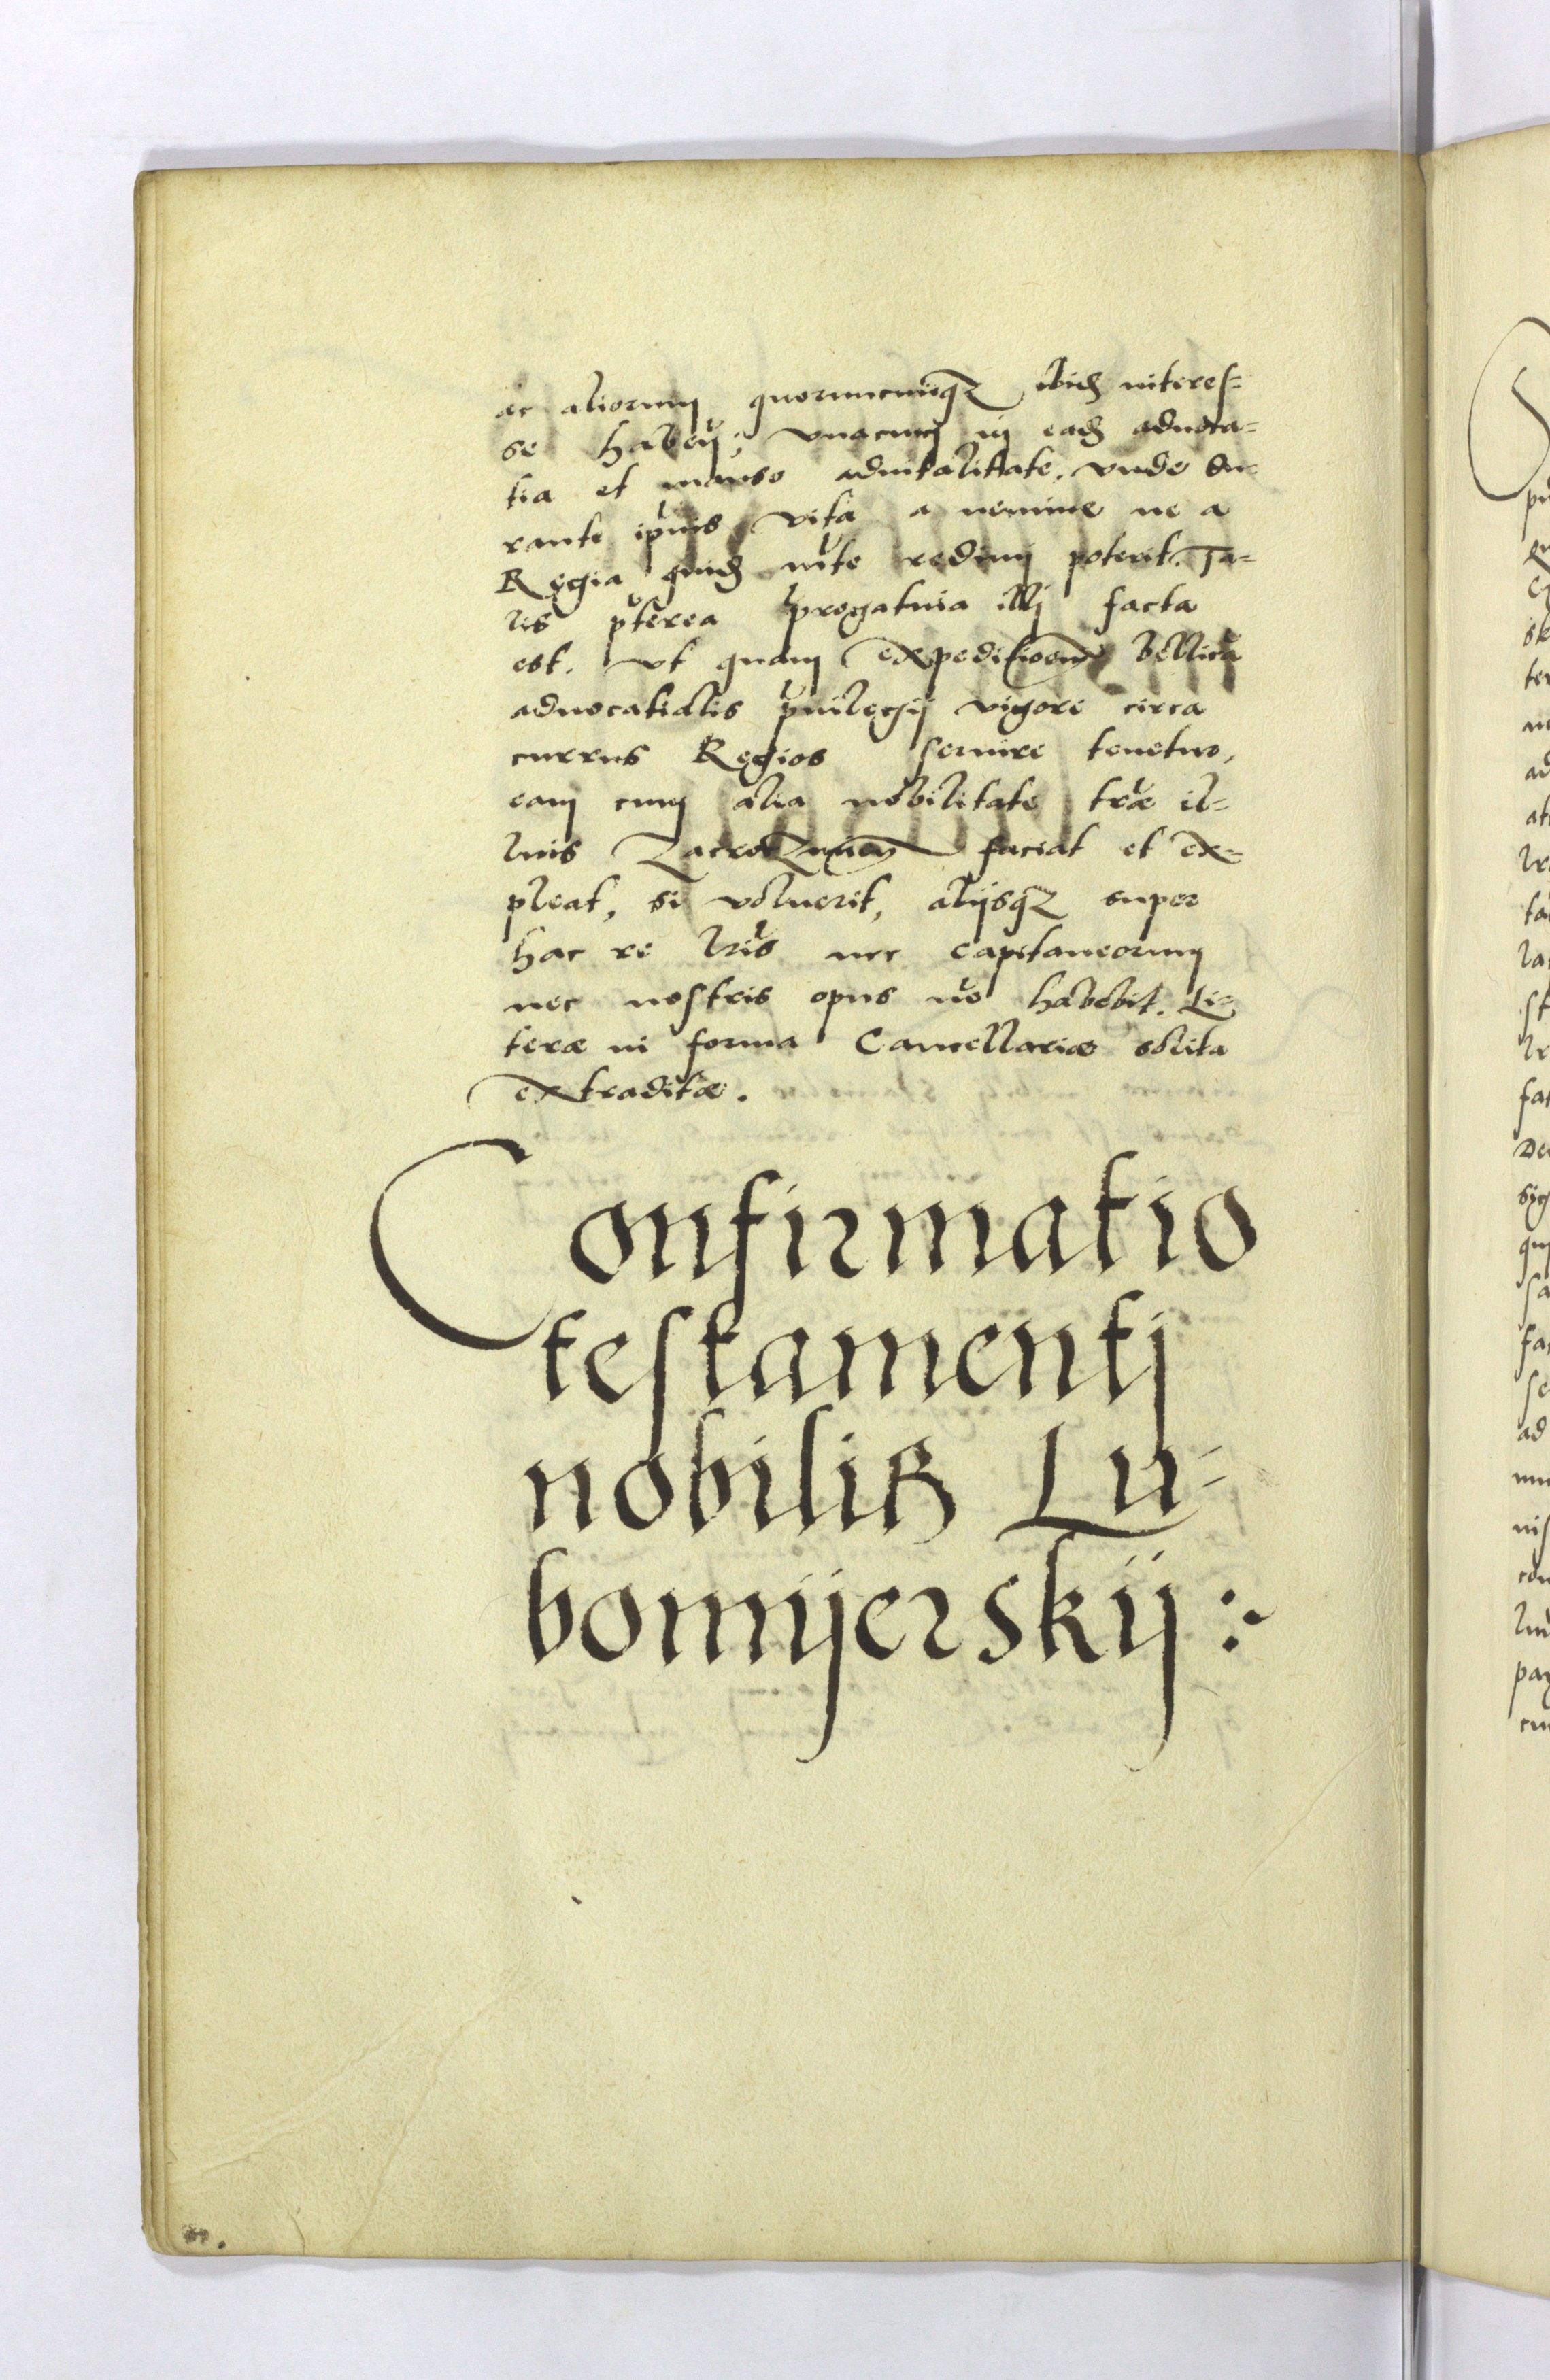 ac aliorum quorumcunqȝ ibid interes=
se haben; vnacum in ead aduoca=
tia et manso aduitalitate, vnde du=
rante ipius vita a nemine ne a
Regia quid mte redimi poterit. Ta=
lis pterea progatiua illj facta
est. vt quam expeditioem bellica
aduocatialis priuilegij vigore circa
currus Regios seruire tenetur,
eam cum alia nobilitate træ il=
lius Zacroczimen faciat et ex=
pleat, si voluerit, alijsqȝ super
hac re lris nec capitaneorum
nec nostris opus no habebit. Li=
teræ in forma Cancellariæ solita
extraditæ.
Confirmatio
testamentj
nobiliß Lu=
bomijerskij:~